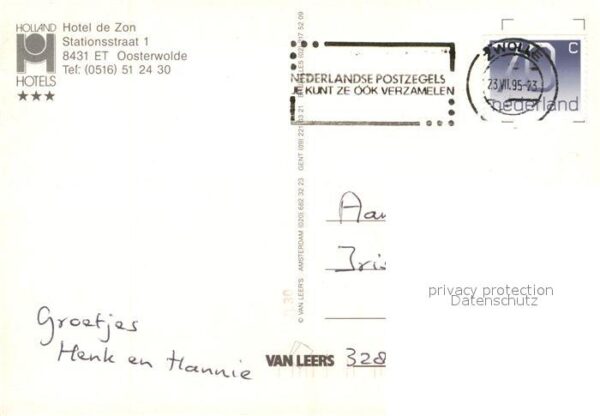 HOLLAND
HOTELS
Hotel de Zon
Stationsstraat 1
8431 ET Oosterwolde
Tel: (0516) 51 24 30
NEDERLANDSE POSTZEGELS
JE KUNT ZE ÓÓK VERZAMELEN
ZWOLLE
23.VII.95-23
70 c
nederland
© VAN LEER'S AMSTERDAM (020) 682 32 23 GENT (09)
Aan
Iris
privacy protection
Datenschutz
Groetjes
Henk en Hannie
VAN LEERS
328